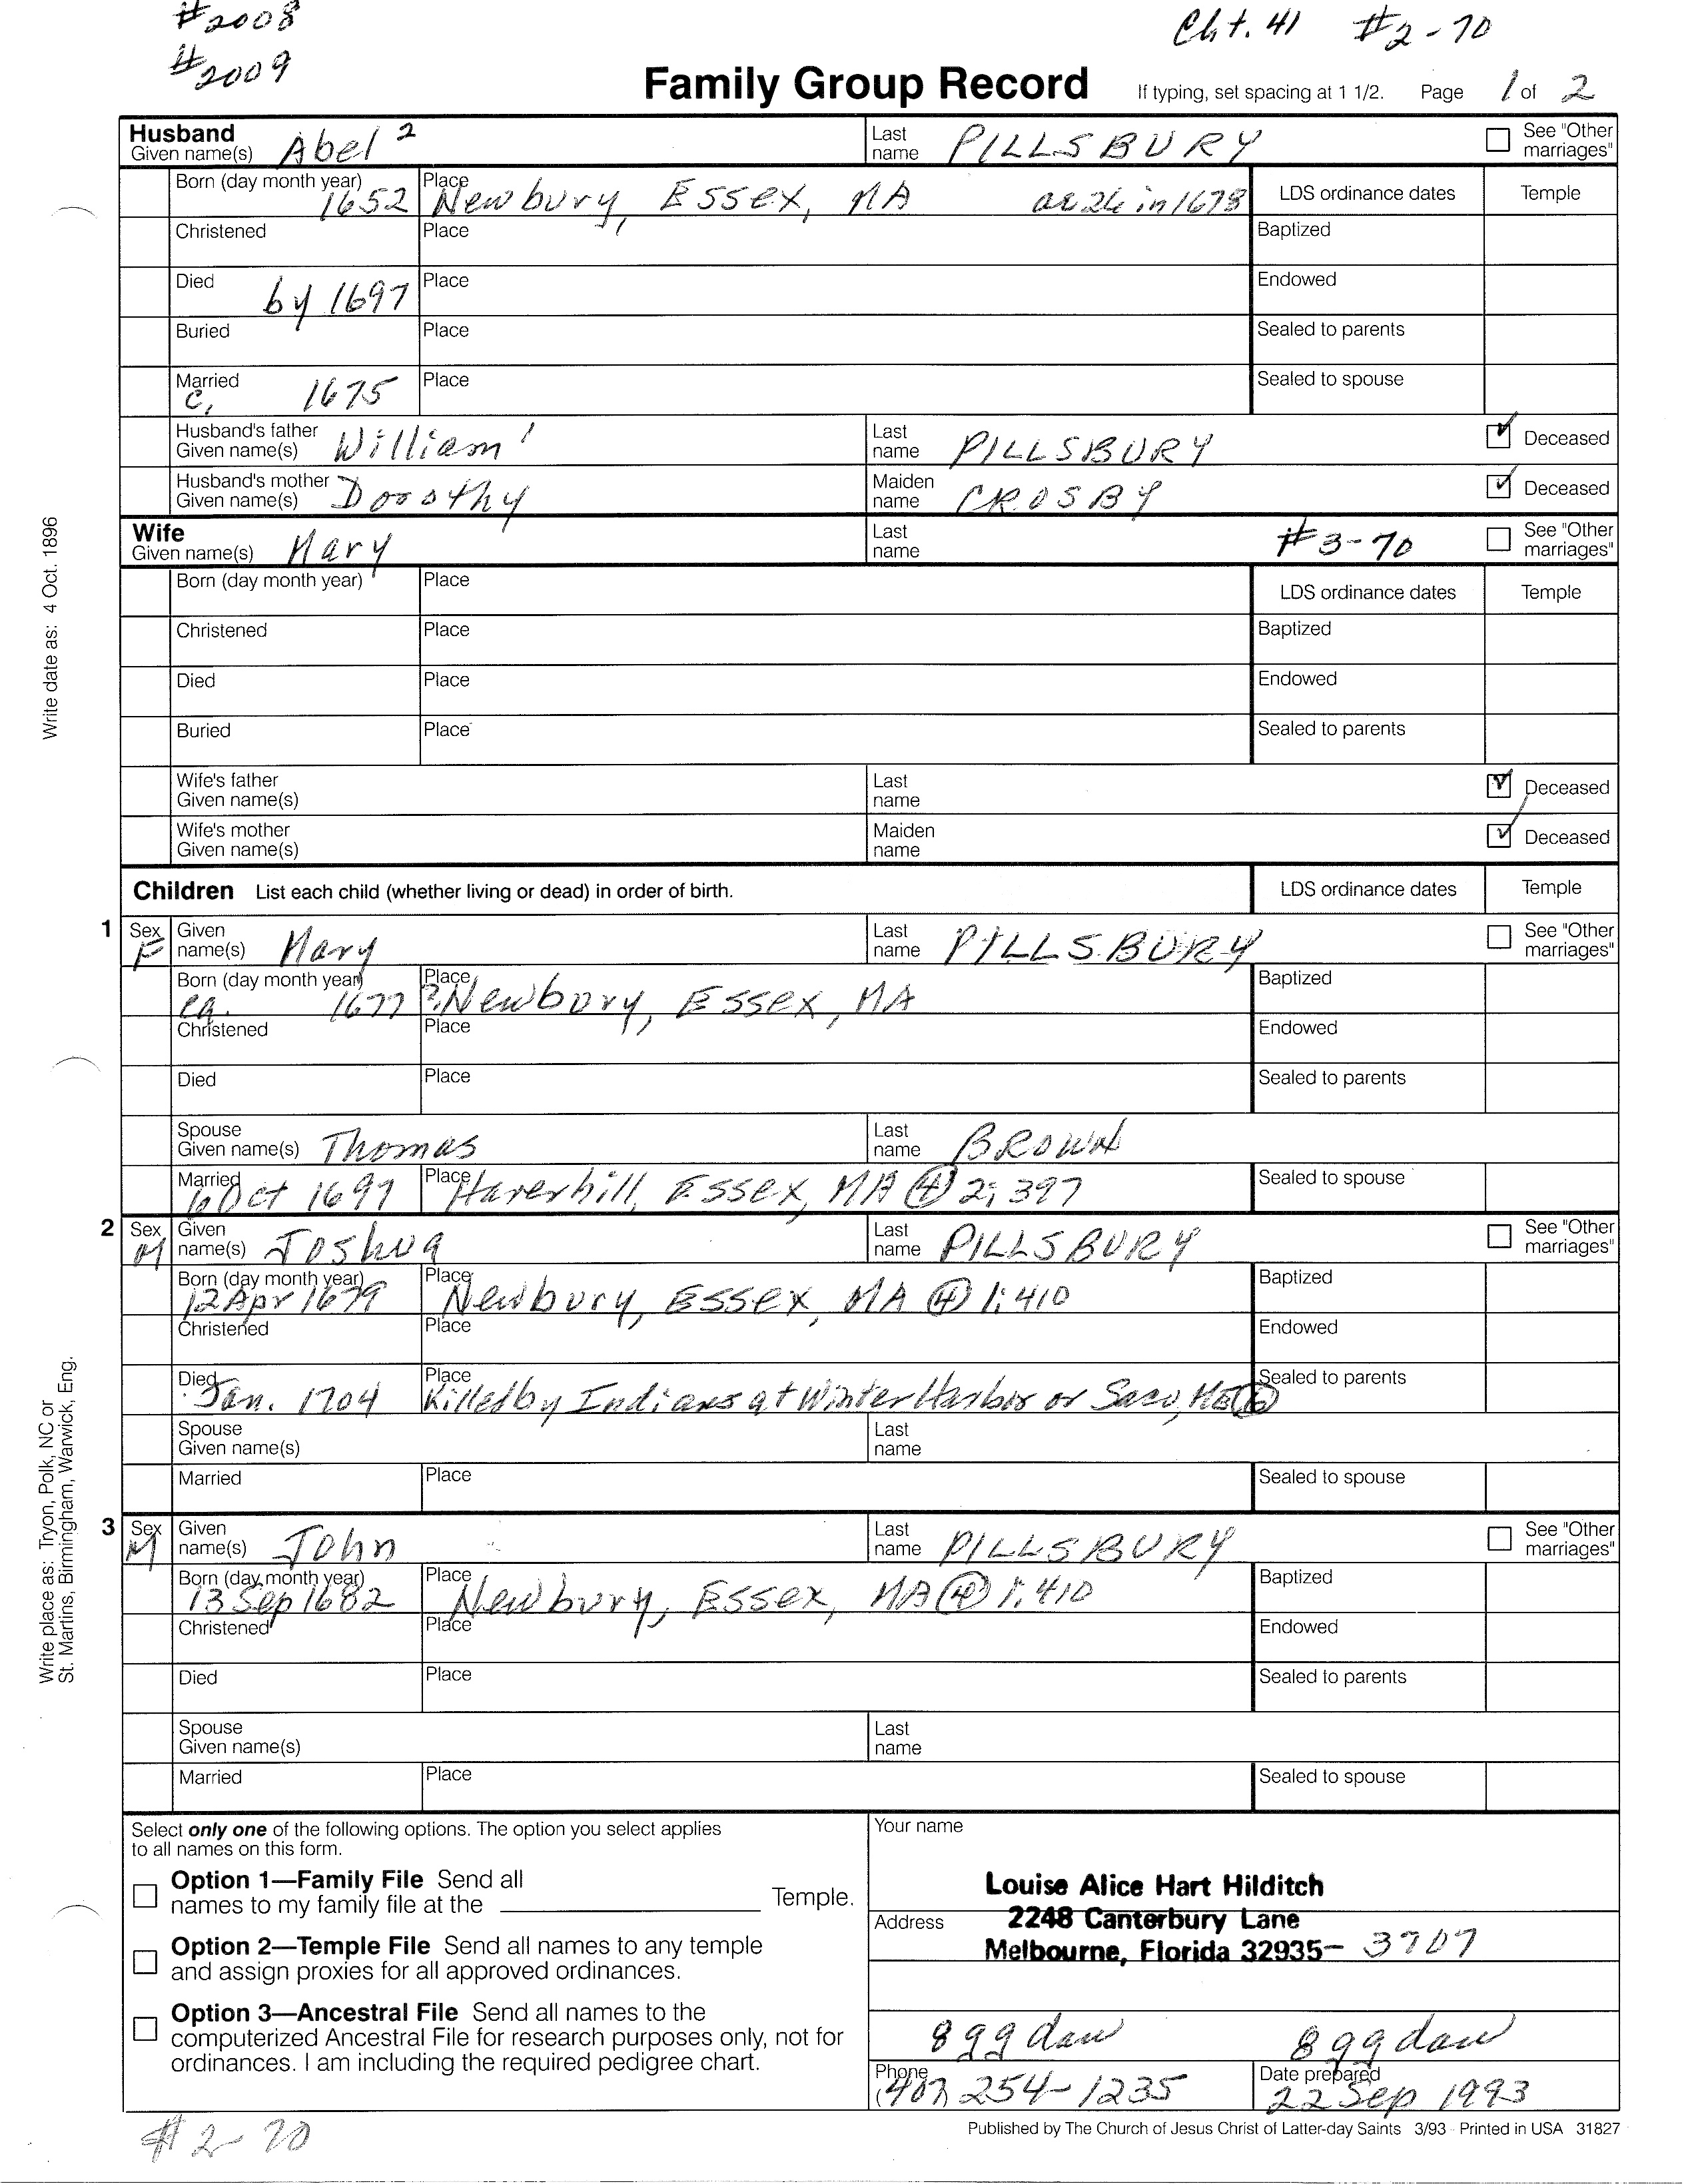 #2008
#2009
Cht. 41 #2-70
Family Group Record If typing, set spacing at 1 1/2. Page 1 of 2
Husband Given name(s) Abel 2 Last name PILLSBURY See "Other marriages"
Born (day month year) 1652 Place Newbury, Essex, MA ae 26 in 1678 LDS ordinance dates Temple
Christened Place Baptized
Died by 1697 Place Endowed
Buried Place Sealed to parents
Married c. 1675 Place Sealed to spouse
Husband's father Given name(s) William 1 Last name PILLSBURY Deceased
Husband's mother Given name(s) Dorothy Maiden name CROSBY Deceased
Wife Given name(s) Mary Last name #3-70 See "Other marriages"
Born (day month year) Place LDS ordinance dates Temple
Christened Place Baptized
Died Place Endowed
Buried Place Sealed to parents
Wife's father Given name(s) Last name Deceased
Wife's mother Given name(s) Maiden name Deceased
Children List each child (whether living or dead) in order of birth. LDS ordinance dates Temple
1 Sex F Given name(s) Mary Last name PILLSBURY See "Other marriages"
Born (day month year) ca. 1677 Place ?Newbury, Essex, MA Baptized
Christened Place Endowed
Died Place Sealed to parents
Spouse Given name(s) Thomas Last name BROWN
Married 6 Oct 1697 Place Haverhill, Essex, MA (4) 2; 397 Sealed to spouse
2 Sex M Given name(s) Joshua Last name PILLSBURY See "Other marriages"
Born (day month year) 12 Apr 1679 Place Newbury, Essex, MA (4) 1:410 Baptized
Christened Place Endowed
Died Jan. 1704 Place Killed by Indians at Winter Harbor or Saco, ME (6) Sealed to parents
Spouse Given name(s) Last name
Married Place Sealed to spouse
3 Sex M Given name(s) John Last name PILLSBURY See "Other marriages"
Born (day month year) 13 Sep 1682 Place Newbury, Essex, MA (4) 1:410 Baptized
Christened Place Endowed
Died Place Sealed to parents
Spouse Given name(s) Last name
Married Place Sealed to spouse
Write date as: 4 Oct. 1896
Write place as: Tryon, Polk, NC or
St. Martins, Birmingham, Warwick, Eng.
Select only one of the following options. The option you select applies
to all names on this form.
Option 1—Family File Send all
names to my family file at the Temple.
Option 2—Temple File Send all names to any temple
and assign proxies for all approved ordinances.
Option 3—Ancestral File Send all names to the
computerized Ancestral File for research purposes only, not for
ordinances. I am including the required pedigree chart.
Your name
Louise Alice Hart Hilditch
Address 2248 Canterbury Lane
Melbourne, Florida 32935- 3707
899 daw 899 daw
Phone (407) 254-1235 Date prepared 22 Sep 1993
Published by The Church of Jesus Christ of Latter-day Saints 3/93 Printed in USA 31827
#2-70